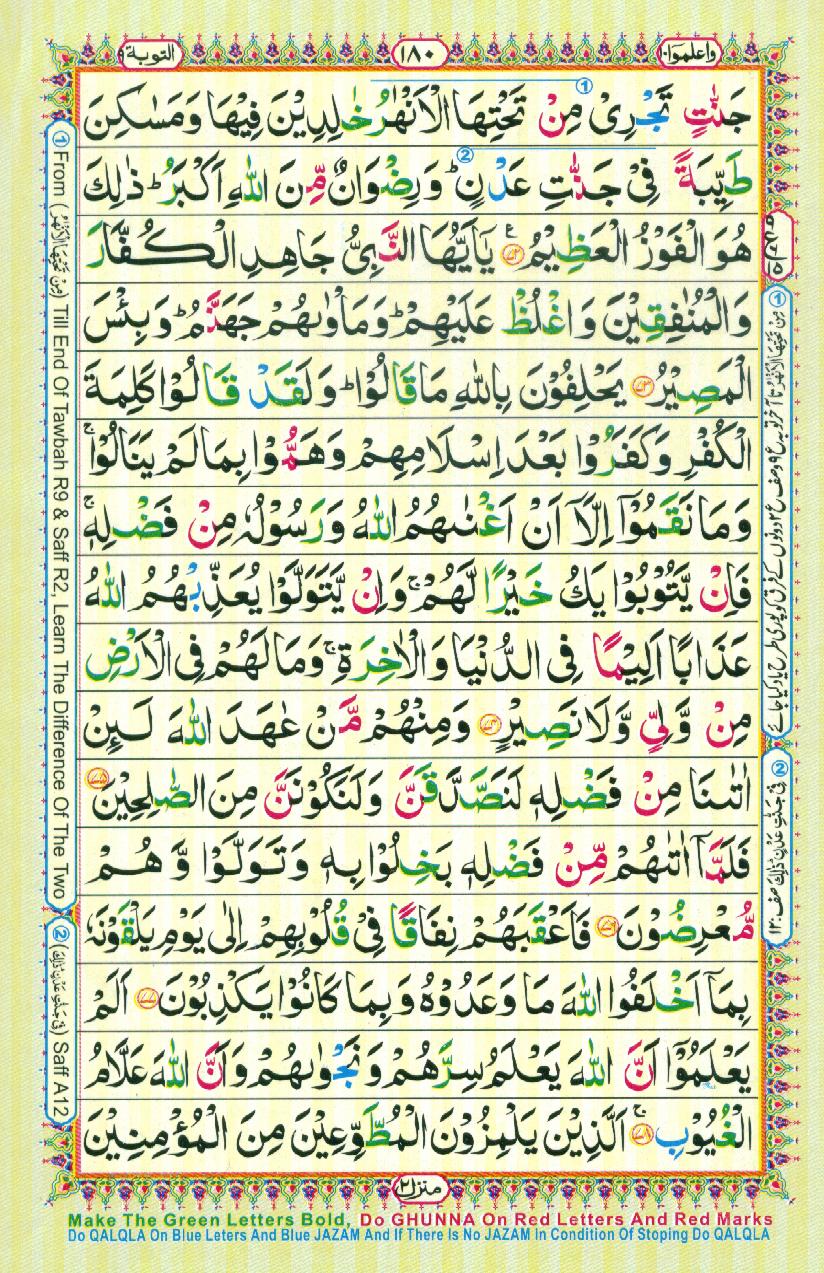 واعلموا۱۰
۱۸۰
التوبة۹
جَنّٰتٍ تَجْرِیْ مِنْ تَحْتِهَا الْاَنْهٰرُ خٰلِدِیْنَ فِیْهَا وَمَسٰكِنَ
طَیِّبَةً فِیْ جَنّٰتِ عَدْنٍ ؕ وَرِضْوَانٌ مِّنَ اللّٰهِ اَكْبَرُ ؕ ذٰلِكَ
هُوَ الْفَوْزُ الْعَظِیْمُ ﴿۷۲﴾ یٰۤاَیُّهَا النَّبِیُّ جَاهِدِ الْكُفَّارَ
وَالْمُنٰفِقِیْنَ وَاغْلُظْ عَلَیْهِمْ ؕ وَمَاْوٰىهُمْ جَهَنَّمُ ؕ وَبِئْسَ
الْمَصِیْرُ ﴿۷۳﴾ یَحْلِفُوْنَ بِاللّٰهِ مَا قَالُوْا ؕ وَلَقَدْ قَالُوْا كَلِمَةَ
الْكُفْرِ وَكَفَرُوْا بَعْدَ اِسْلَامِهِمْ وَهَمُّوْا بِمَا لَمْ یَنَالُوْا ۚ
وَمَا نَقَمُوْۤا اِلَّاۤ اَنْ اَغْنٰىهُمُ اللّٰهُ وَرَسُوْلُهٗ مِنْ فَضْلِهٖ ۚ
فَاِنْ یَّتُوْبُوْا یَكُ خَیْرًا لَّهُمْ ۚ وَاِنْ یَّتَوَلَّوْا یُعَذِّبْهُمُ اللّٰهُ
عَذَابًا اَلِیْمًا فِی الدُّنْیَا وَالْاٰخِرَةِ ۚ وَمَا لَهُمْ فِی الْاَرْضِ
مِنْ وَّلِیٍّ وَّلَا نَصِیْرٍ ﴿۷۴﴾ وَمِنْهُمْ مَّنْ عٰهَدَ اللّٰهَ لَىِٕنْ
اٰتٰىنَا مِنْ فَضْلِهٖ لَنَصَّدَّقَنَّ وَلَنَكُوْنَنَّ مِنَ الصّٰلِحِیْنَ ﴿۷۵﴾
فَلَمَّاۤ اٰتٰىهُمْ مِّنْ فَضْلِهٖ بَخِلُوْا بِهٖ وَتَوَلَّوْا وَّهُمْ
مُّعْرِضُوْنَ ﴿۷۶﴾ فَاَعْقَبَهُمْ نِفَاقًا فِیْ قُلُوْبِهِمْ اِلٰی یَوْمِ یَلْقَوْنَهٗ
بِمَاۤ اَخْلَفُوا اللّٰهَ مَا وَعَدُوْهُ وَبِمَا كَانُوْا یَكْذِبُوْنَ ﴿۷۷﴾ اَلَمْ
یَعْلَمُوْۤا اَنَّ اللّٰهَ یَعْلَمُ سِرَّهُمْ وَنَجْوٰىهُمْ وَاَنَّ اللّٰهَ عَلَّامُ
الْغُیُوْبِ ﴿۷۸﴾ ۚ اَلَّذِیْنَ یَلْمِزُوْنَ الْمُطَّوِّعِیْنَ مِنَ الْمُؤْمِنِیْنَ
① مِنْ تَحْتِهَا الْاَنْهٰرُ تا آخر توبہ ع ۹ و صف ع ۲ دونوں کے فرق کو پوری طرح یاد کیا جائے
② فِیْ جَنّٰتِ عَدْنٍ ؕ ذٰلِكَ صف: ۱۲
① From (مِنْ تَحْتِهَا الْاَنْهٰرُ) Till End Of Tawbah R9 & Saff R2, Learn The Difference Of The Two
② (فِیْ جَنّٰتِ عَدْنٍ ؕ ذٰلِكَ) Saff A12
منزل۲
Make The Green Letters Bold, Do GHUNNA On Red Letters And Red Marks
Do QALQLA On Blue Leters And Blue JAZAM And If There Is No JAZAM In Condition Of Stoping Do QALQLA